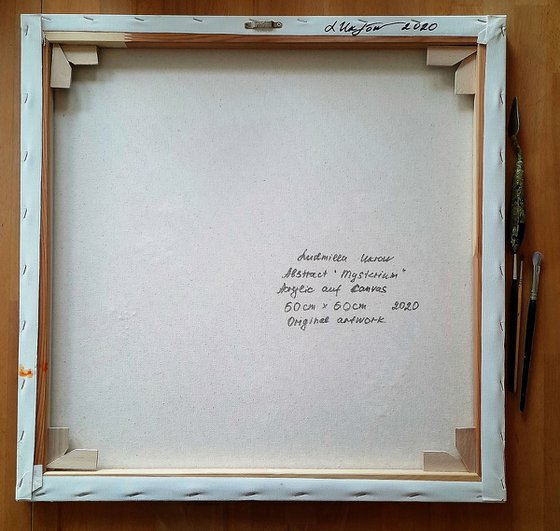 2020
Ludmilla Ukrow
Abstract "Mysterium"
Acrylic auf Canvas
50cm x 50cm 2020
Original artwork